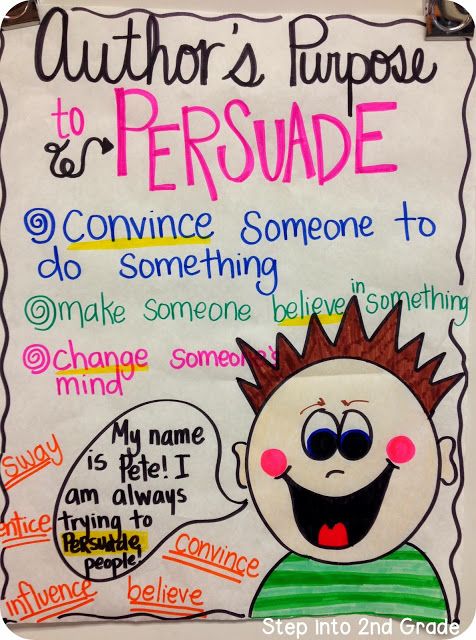 Author's Purpose
to PERSUADE
Convince someone to
do something
make someone believe in something
change someone's
mind
My name
is Pete! I
am always
trying to
Persuade
people!
sway
entice
convince
influence
believe
Step into 2nd Grade